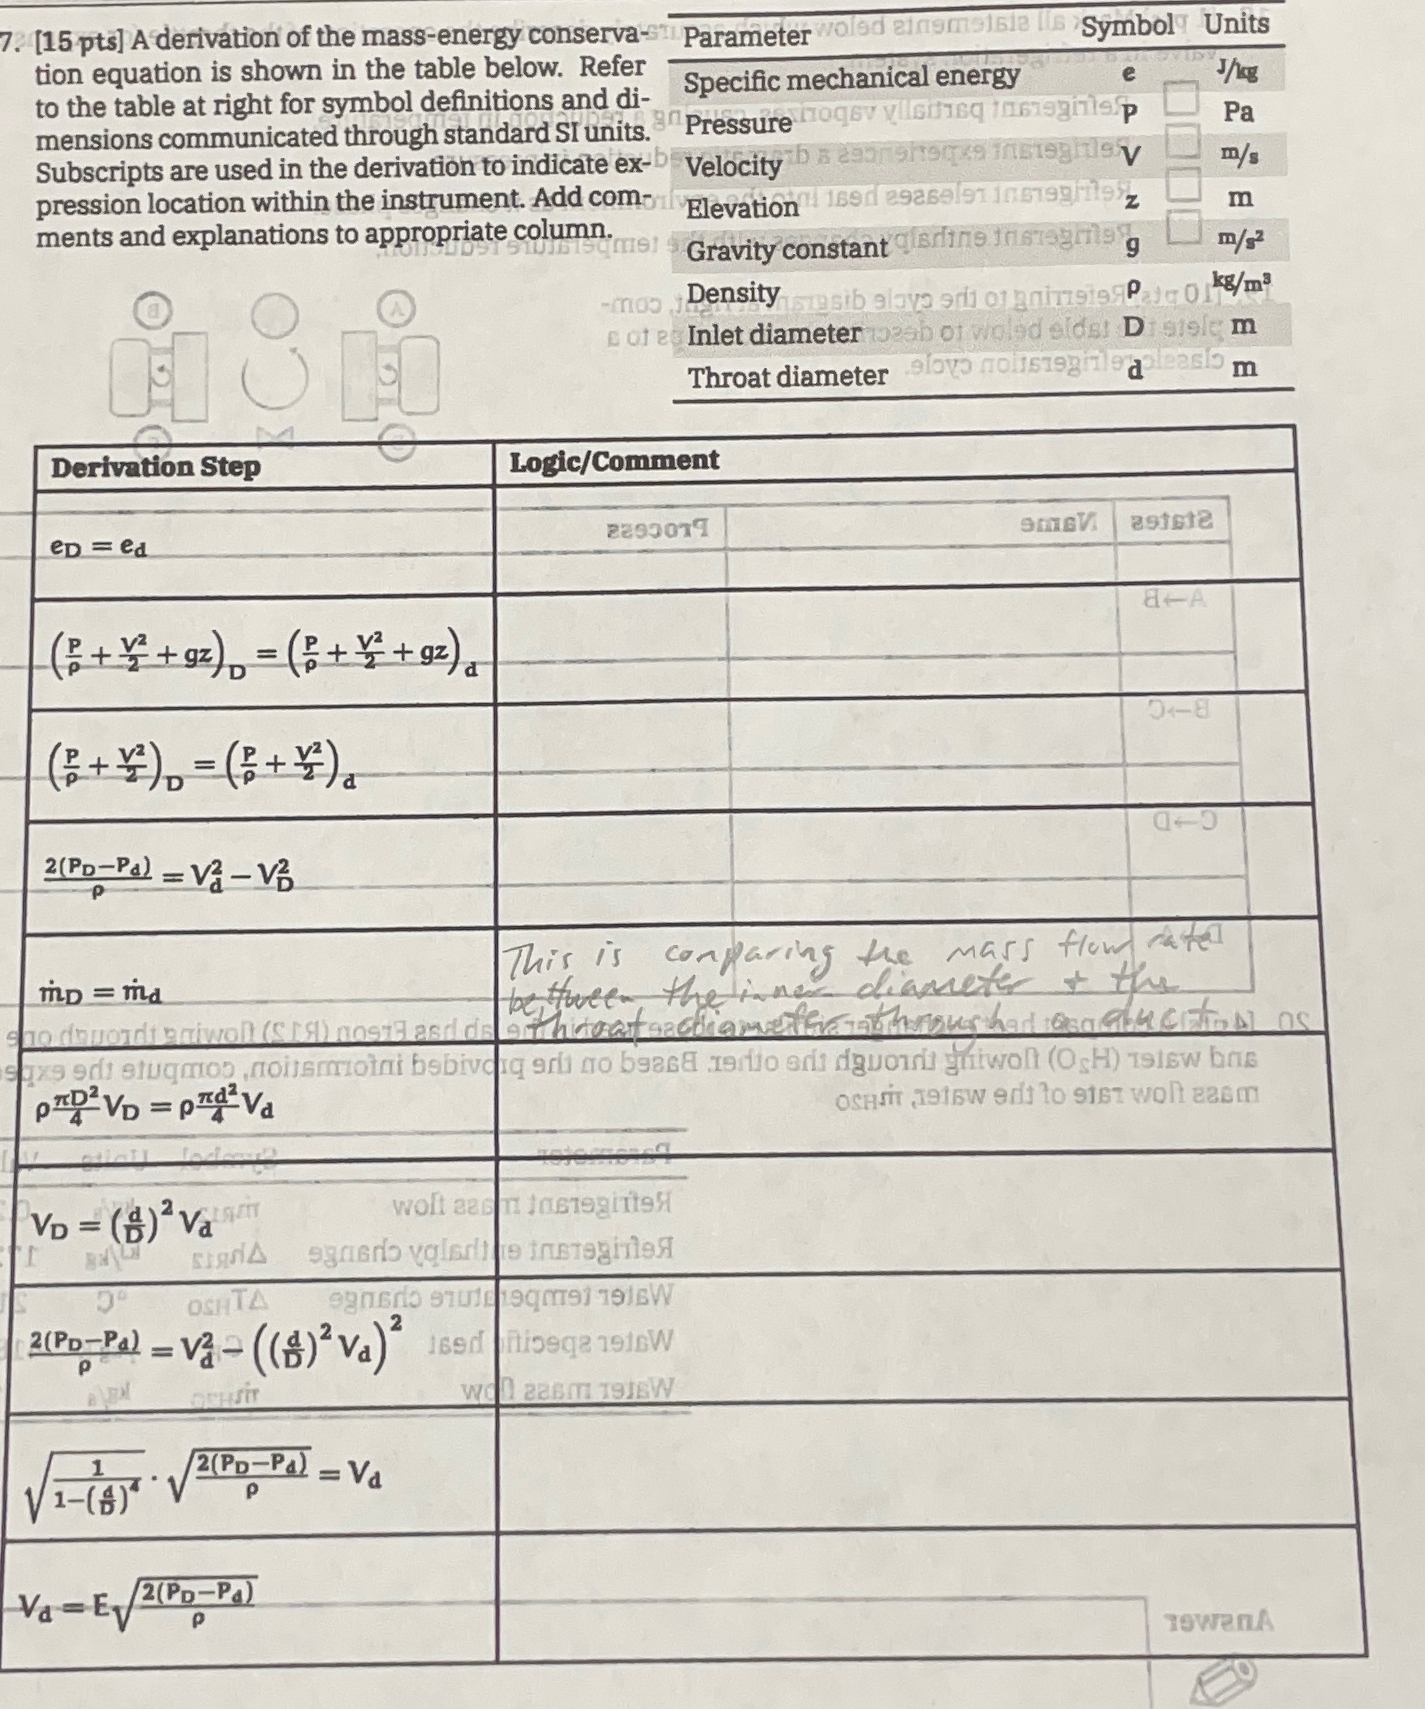 7. [15 pts] A derivation of the mass-energy conserva-
tion equation is shown in the table below. Refer
to the table at right for symbol definitions and di-
mensions communicated through standard SI units.
Subscripts are used in the derivation to indicate ex-
pression location within the instrument. Add com-
ments and explanations to appropriate column.
Parameter Symbol Units
Specific mechanical energy e J/kg
Pressure P Pa
Velocity V m/s
Elevation z m
Gravity constant g m/s²
Density ρ kg/m³
Inlet diameter D m
Throat diameter d m
Derivation Step Logic/Comment
e_D = e_d
(P/ρ + V²/2 + gz)_D = (P/ρ + V²/2 + gz)_d
(P/ρ + V²/2)_D = (P/ρ + V²/2)_d
2(P_D−P_d)/ρ = V_d² − V_D²
ṁ_D = ṁ_d
This is comparing the mass flow rate
bettween the inner diameter + the
throat diameter through a duct.
ρ πD²/4 V_D = ρ πd²/4 V_d
V_D = (d/D)² V_d
2(P_D−P_d)/ρ = V_d² − ((d/D)² V_d)²
√(1/(1−(d/D)⁴)) · √(2(P_D−P_d)/ρ) = V_d
V_d = E√(2(P_D−P_d)/ρ)